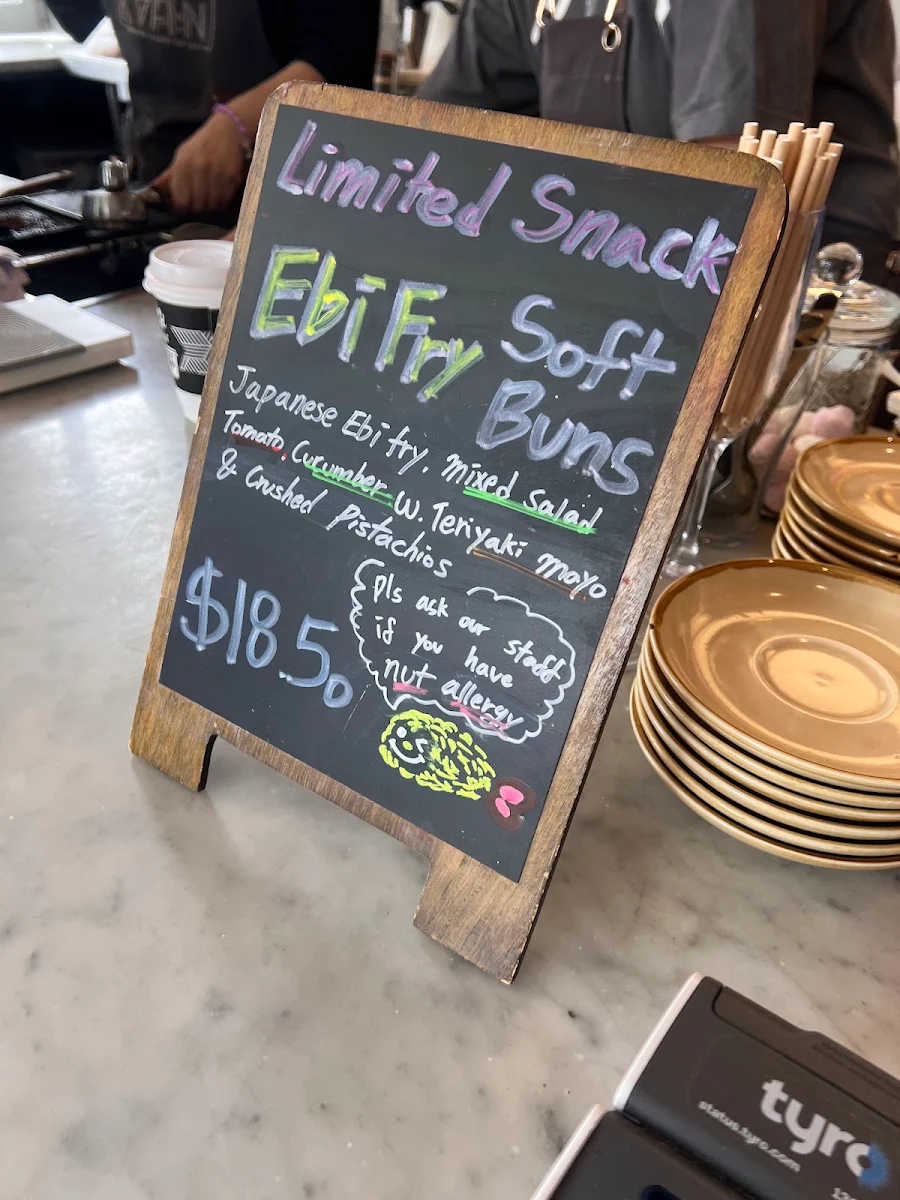 Limited Snack
Ebi Fry Soft
Buns
Japanese Ebi fry, mixed Salad
Tomato, Cucumber w. Teriyaki mayo
& Crushed Pistachios
$18.50
pls ask our staff
if you have
nut allergy
tyro
status.tyro.com